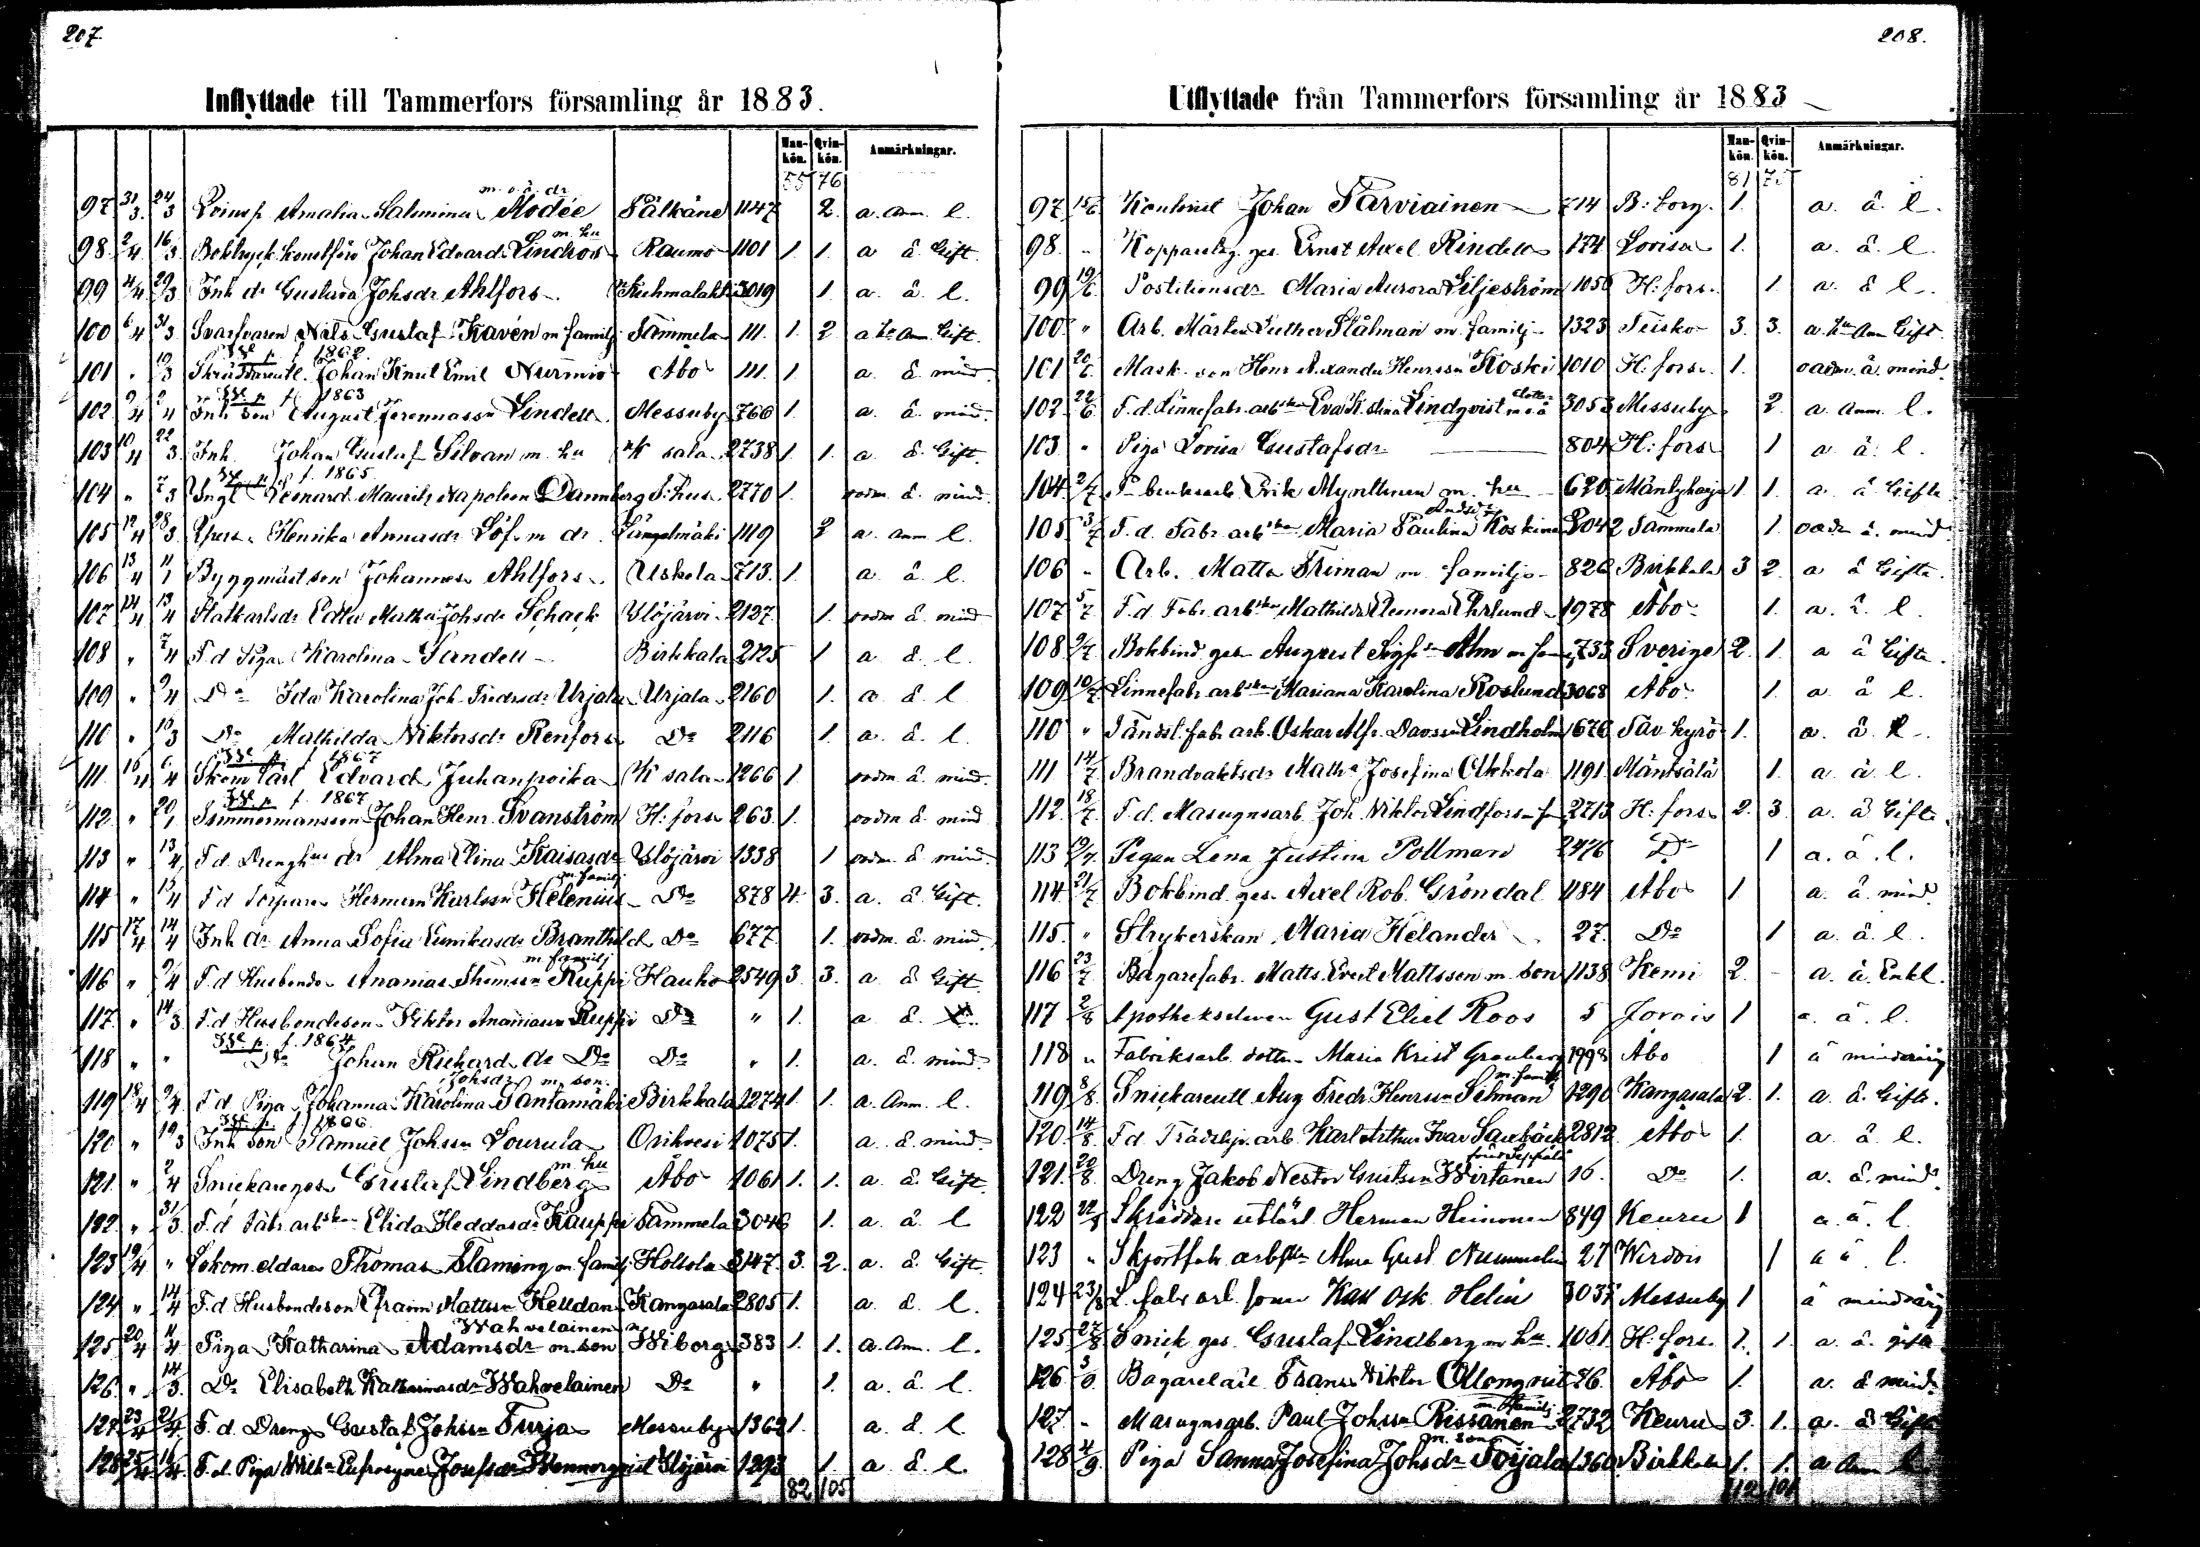 207.
Inflyttade till Tammerfors församling år 1883.
Man-kön. Qvin-kön. Anmärkningar.
55 76
m. o. ä. dr
97 31/3 24/3 Amalia Salomina Modée Pälkäne 1147 2. a. anm. l.
m. hu
98. 2/4 16/3 Boktryck. konstförv Johan Edvard Lindroos Raumo 1101 1. 1. a. ä. Gift.
99 4/4 29/3 Inh dr Gustava Johsdr Ahlfors Kuhmalaht 3019 1 a. ä. l.
100 6/4 31/3 Svarfvaren Nils Gustaf Kavén m familj Tammela 111. 1. 2 a Anm. Gift.
f. 1862.
101 " 19/3 Johan Knut Emil Nurmio Abo 111. 1. a. ä. mind.
f. 1863
102 9/4 2/4 Inh son August Jeremiassn Lindell Messuby 766 1. a. ä. mind.
103 10/4 22/3 Inh. Johan Gustaf Silvan m. hu K sala 2738 1. 1. a. ä. Gift.
f. 1865
104 " 7/3 Leonard Maurits Napoleon Dannberg T:hus 2770 1. ä. mind.
105 12/4 28/3 Henrika Annasdr Löf m dr Längelmäki 1119 2 a. anm l.
106 13/4 11/1 Byggmäst son Johannes Ahlfors Uskela 713. 1. a. ä. l.
107 14/4 13/4 Statkarlsdr Edla Martha Johsdr Schack Ylöjärvi 2127. 1. ä. mind
108 " 7/4 F. d Piga Karolina Sandell Birkkala 2125 1 a ä. l.
109 " 9/4 Do Ida Karolina Joh. Fredrsdr Urjala Urjala 2160 1. a ä. l
110 " 13/3 Do Mathilda Viktorsdr Renfors Do 2116 1. a. ä. l.
f. 1867
111. 16/4 6/4 Edvard Juhanpoika K sala 1266 1 ä. mind.
f. 1867
112. " 20/1 Timmermansson Johan Henr. Svanström H:fors 263. 1. ä. mind
113 " 13/4 F. d. Drengh dr Alma Elina Kaisasdr Ylöjärvi 1338 1 ä. mind.
m. familj
114 " 13/4 F d Torpare Herman Karlssn Helenius Do 878 4. 3. a. ä. Gift.
115 17/4 14/4 Inh dr Anna Sofia Eunikasdr Branthild Do 677. 1. ä. mind.
m. familj
116 " 9/4 F. d Husbonde Ananias Thomssn Ruppi Hauho 2549 3. 3. a ä Gift.
117. " 14/3 F. d Husbondeson Viktor Ananiassn Ruppi Do " 1. a ä. l.
f. 1864
118 " " Do Johan Richard do Do Do " 1. a. ä. mind.
Johsdr m. son.
119 18/4 9/4 F d Piga Johanna Karolina Santamäki Birkkala 1274 1. 1. a. Anm. l.
f. 1866
120 " 19/3 Inh son Samuel Johssn Lourula Orihvesi 1075 1. a. ä. mind.
m. hu
121. " 2/4 Snickareges Gustaf Lindberg Åbo 1061 1. 1. a. ä. Gift.
122. " 31/3 F. d Fabr. arbskan Elida Heddasdr Kauppi Tammela 3046 1. a. ä. l
123 19/4 " Lokom. eldaren Thomas Flaming m. familj Hollola 3147. 3. 2. a. ä. Gift.
124 " 14/4 F. d. Husbondeson Efraim Mattssn Helldan Kangasala 2805 1. a. ä. l.
Wahvelainen
125. 20/4 11/4 Piga Katharina Adamsdr m. son Wiborg 383 1. 1. a. Anm. l.
126. " 14/3. Do Elisabeth Katharinasdr Wahvelainen Do " 1. a. ä. l.
127 23/4 21/4 F. d. Dreng Gustaf Johssn Turja Messuby 1362 1. a. ä. l
128 25/4 16/4 F. d. Piga Eufrosyne Josefsdr Wennerqvist Ylöjärvi 1293 1. a. ä. l.
82 105
208.
Utflyttade från Tammerfors församling år 1883
Man-kön. Qvin-kön. Anmärkningar.
81
97 15/6 Johan Tarviainen 714 B:borg. 1. a. ä. l.
98. " Kopparslag. ges. Ernst Axel Rindell 174 Lovisa 1. a. ä. l.
99 19/6 Postilionsdr Maria Aurora Liljeström 1056 H:fors. 1 a. ä l.
100 " Arb. Mårten Luther Stålman m. familj 1323 Teisko 3. 3. a. Anm Gift.
101 20/6 Mask. son Henr Alexander Henrssn Koski 1010 H:fors. 1. ä. mind.
dotter
102. 22/6 F. d. Linnefabr. arbskan Eva Kristina Lindqvist m o ä 3053 Messuby 2. a. Anm. l.
103 " Piga Lovisa Gustafsdr 804 H:fors 1 a ä. l.
104. 2/7 Erik Mynttinen m. hu 620 Mäntyharju 1 1. a. ä Gifta
105 3/7 F. d. Fabr. arbskan Maria Paulina Koskinen 3042 Tammela 1. ä. mind.
106 " Arb. Matts Friman m. familj 826 Birkkala 3 2. a ä Gifta.
107 5/7 F. d. Fabr. arbskan Mathilda Eleonora Ehrlund 1978 Abo 1. a. ä. l.
108 9/7 Bokbind. ges August Alm 733 Sverige 2. 1. a ä Gifta.
109 10/7 Linnefabr. arbskan Mariana Karolina Roslund 3068 Abo 1. a ä l.
110 " Tändst. fabr. arb. Oskar Alfr. Davssn Lindholm 1676 Tav. kyrö 1. a. ä. l.
111 14/7 Brandvaktsdr Matha Josefina Alkkola 1191 Mäntsälä 1. a. ä. l.
112. 18/7. F. d. Masugnsarb. Joh. Viktor Lindfors m f 2713 H:fors 2. 3. a. ä Gifta.
113 9/7. Pigan Lena Justina Pollman 2476 Do 1 a. ä. l.
114. 21/7 Bokbind. ges. Axel Rob. Gröndal 1184 Abo 1. a. ä. mind.
115. " Strykerskan Maria Helander 27. Do 1 a. ä. l.
116 23/7 Bagarefabr. Matts Evert Mattsson m. son 1138 Kemi 2. - a. ä. Enkl.
117 2/8 Apotekseleven Gust Eliel Roos 5 Jorois 1 a. ä. l.
118 " Fabriksarb. dotter Maria Krist Granberg 1998 Abo 1 ä minderårig
m. familj
119 8/8. Snickareutl Aug Fredr Henrssn Selman 1290 Kangasala 2. 1. a. ä. Gifta.
120. 14/8. F. d. Trädslip. arb. Karl Arthur Ivar Saxbäck 2812 Abo 1. a. ä. l.
förut Seppälä
121. 20/8. Dreng Jakob Nestor Gustssn Wirtanen 16. Do 1. a. ä. mind.
122 22/8 Skräddare utlärl. Herman Heinonen 849 Keuru 1 a. ä. l.
123 " Skjortfabr arbskan Alma Gust. Nummelin 27 Wirdois 1 a ä l.
124 23/8 L. fabr arb. sonen Karl Osk. Helin 3035 Messuby 1 ä minderårig
125 27/8 Snick. ges. Gustaf Lindberg m hu. 1061 H:fors. 1. 1. a. ä. gifta
126. 3/9. Bagarelärl. Frans Viktor Ollonqvist 76. Abo 1. a. ä mind.
m. familj.
127. " Masugnsarb. Paul Johssn Rissanen 2732 Keuru 3. 1. a. ä Gifta
m. son
128 4/9 Piga Sanna Josefina Johsdr Toijala 1360 Birkkala 1. 1. a Anm l.
112 101